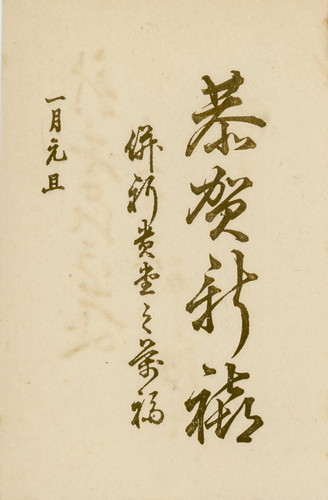 恭賀新禧
併祈貴堂之萬福
一月元旦